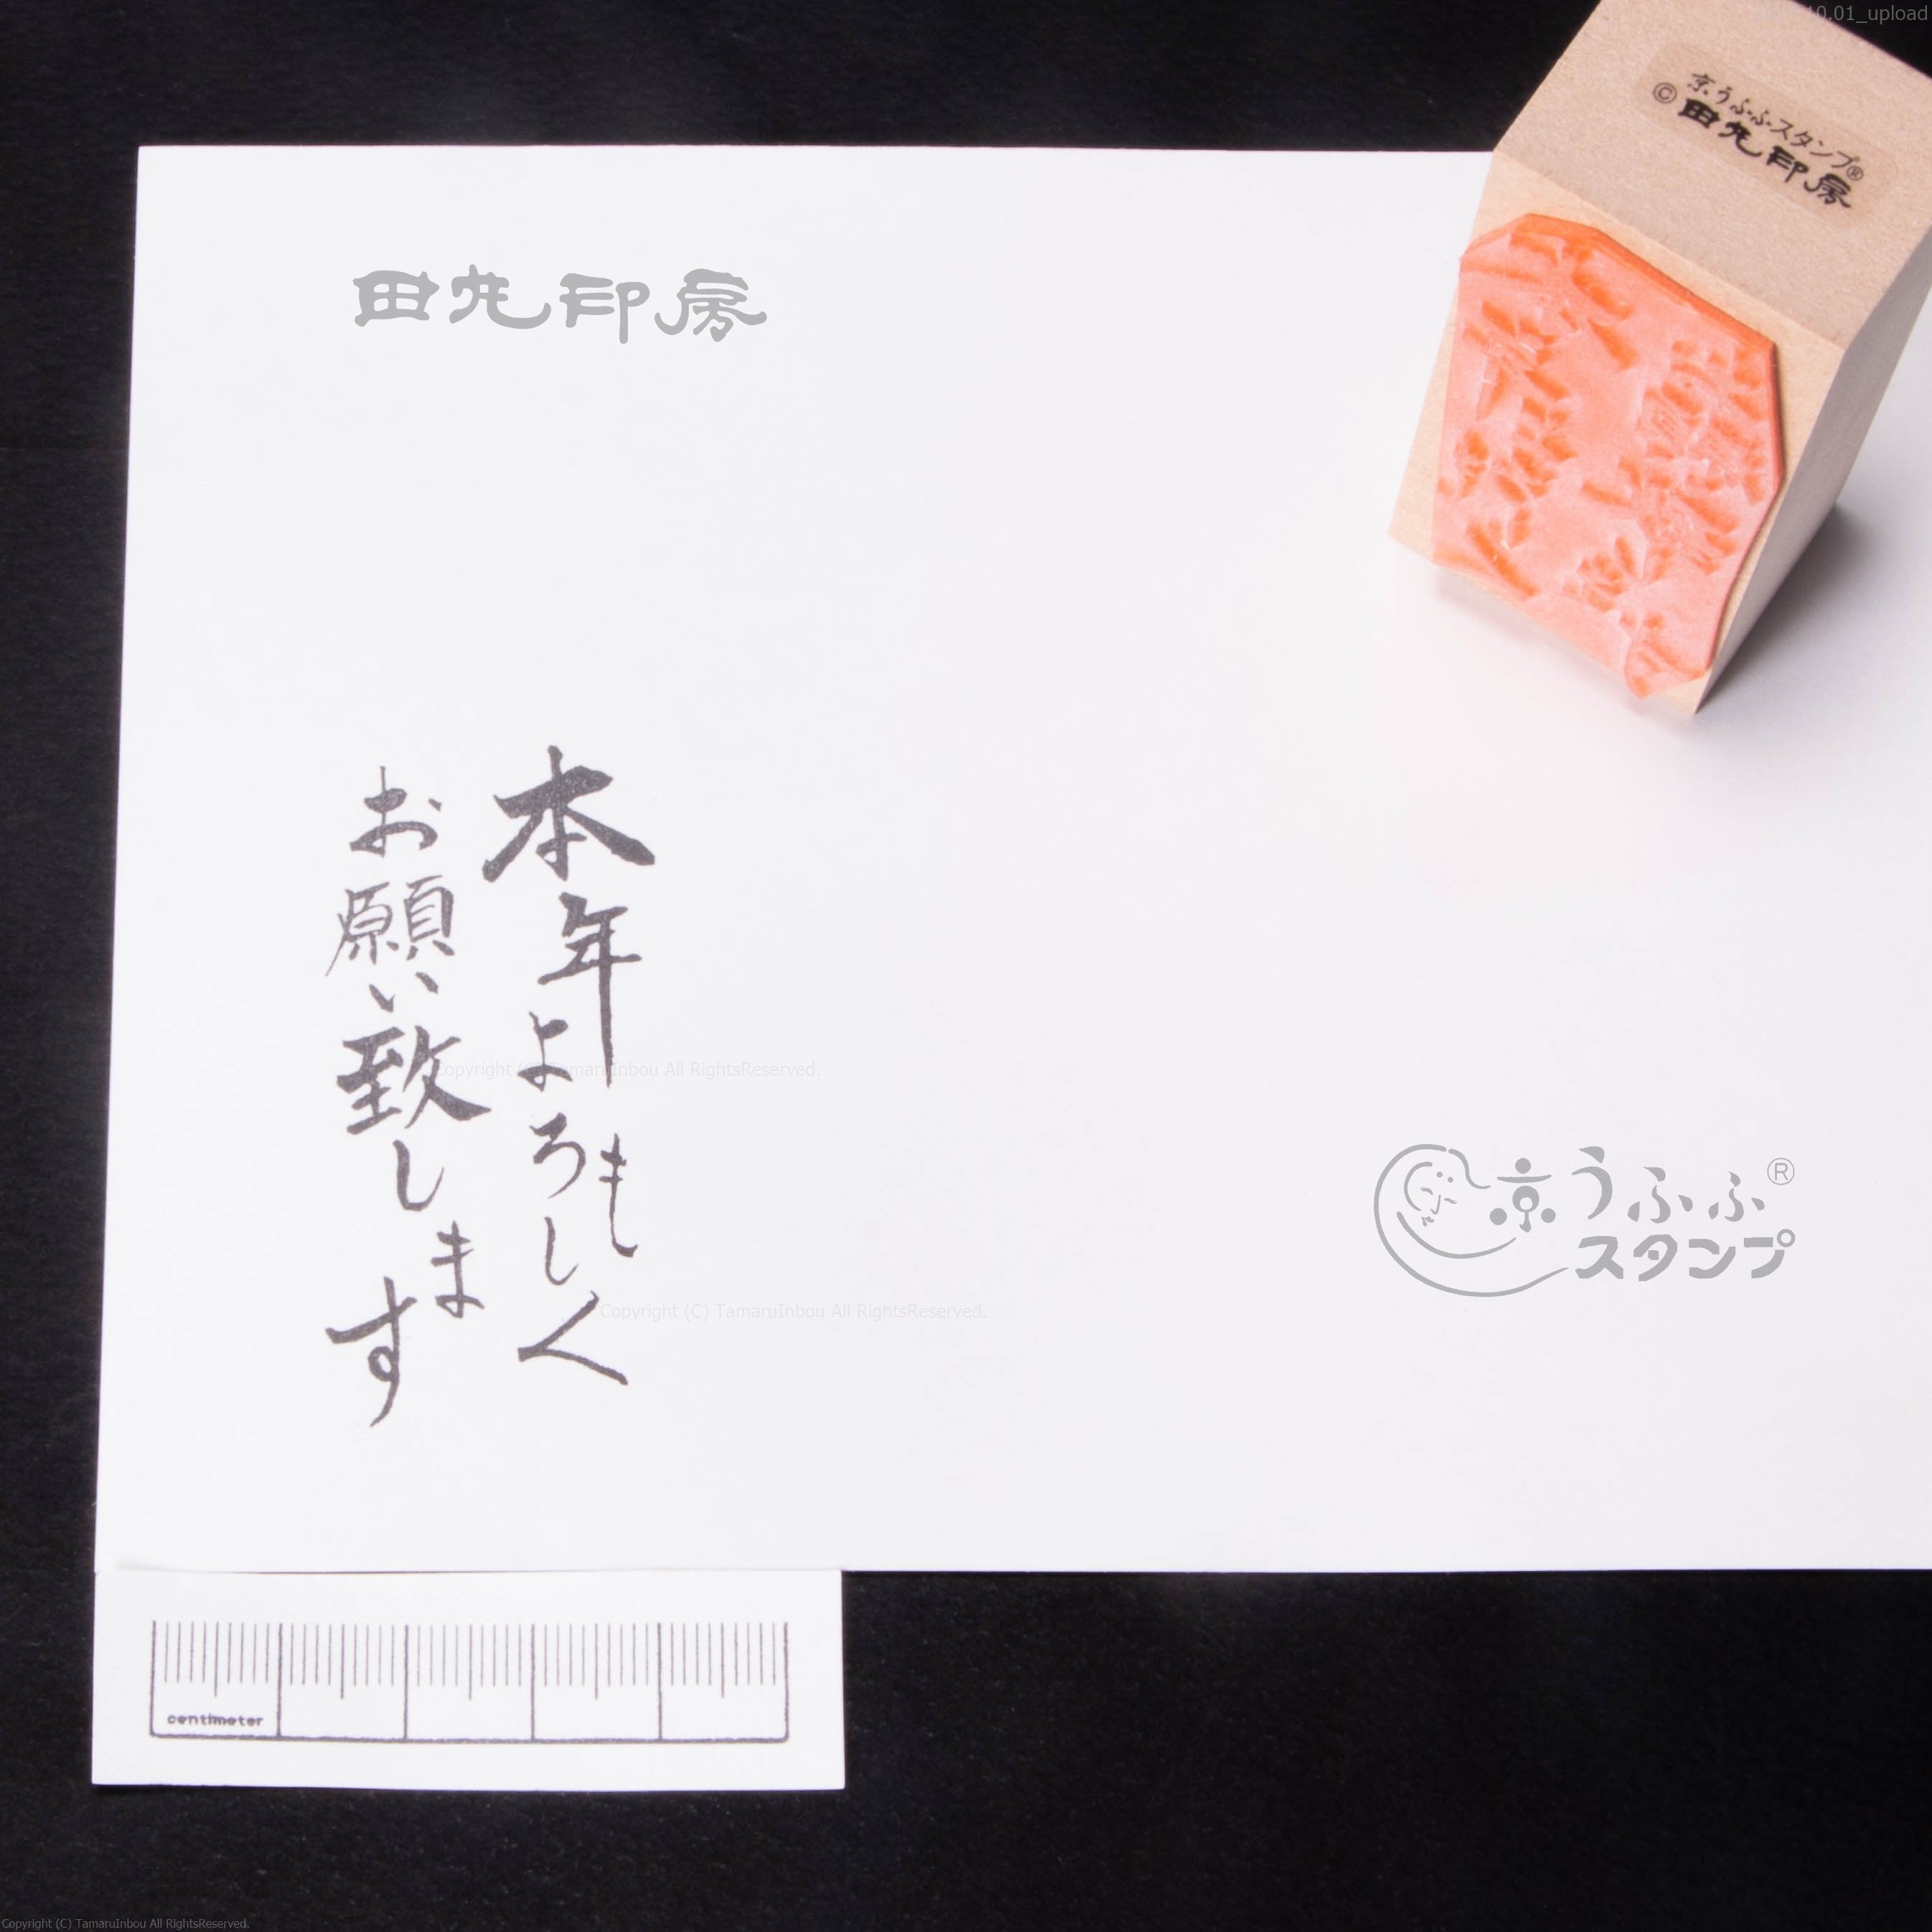 10.01_upload
京うふふスタンプ®
©田丸印房
田丸印房
本年もよろしく
お願い致します
Copyright (C) TamaruInbou All RightsReserved.
京うふふ®
スタンプ
Copyright (C) TamaruInbou All RightsReserved.
centimeter
Copyright (C) TamaruInbou All RightsReserved.